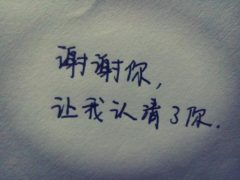 谢谢你,
让我认清了你.